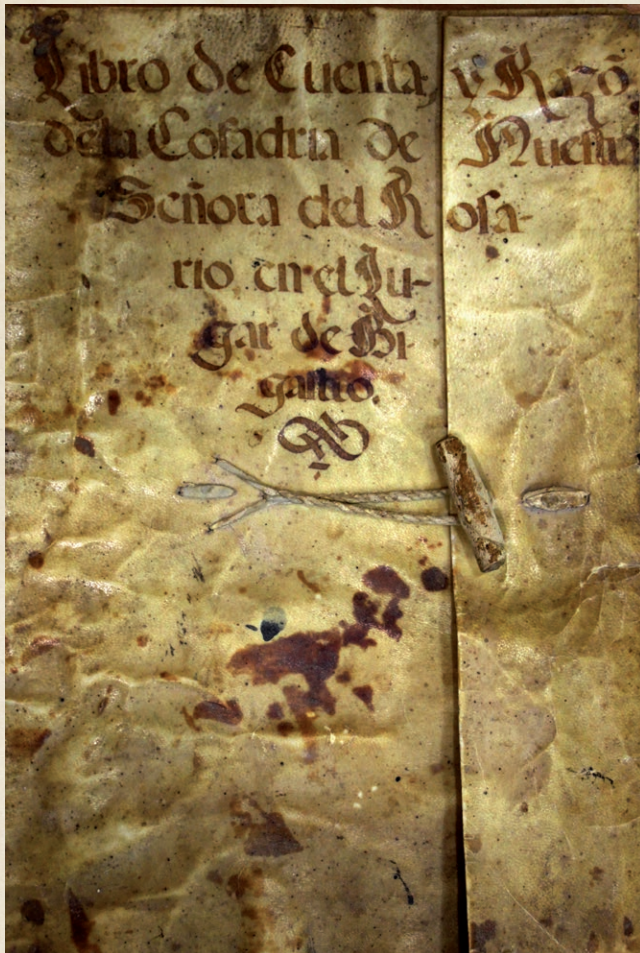 Libro de Cuenta, y Razõ
de la Cofadria de Nuestra
Señora del Rosa-
rio en el Lu-
gar de Bi
gastro.